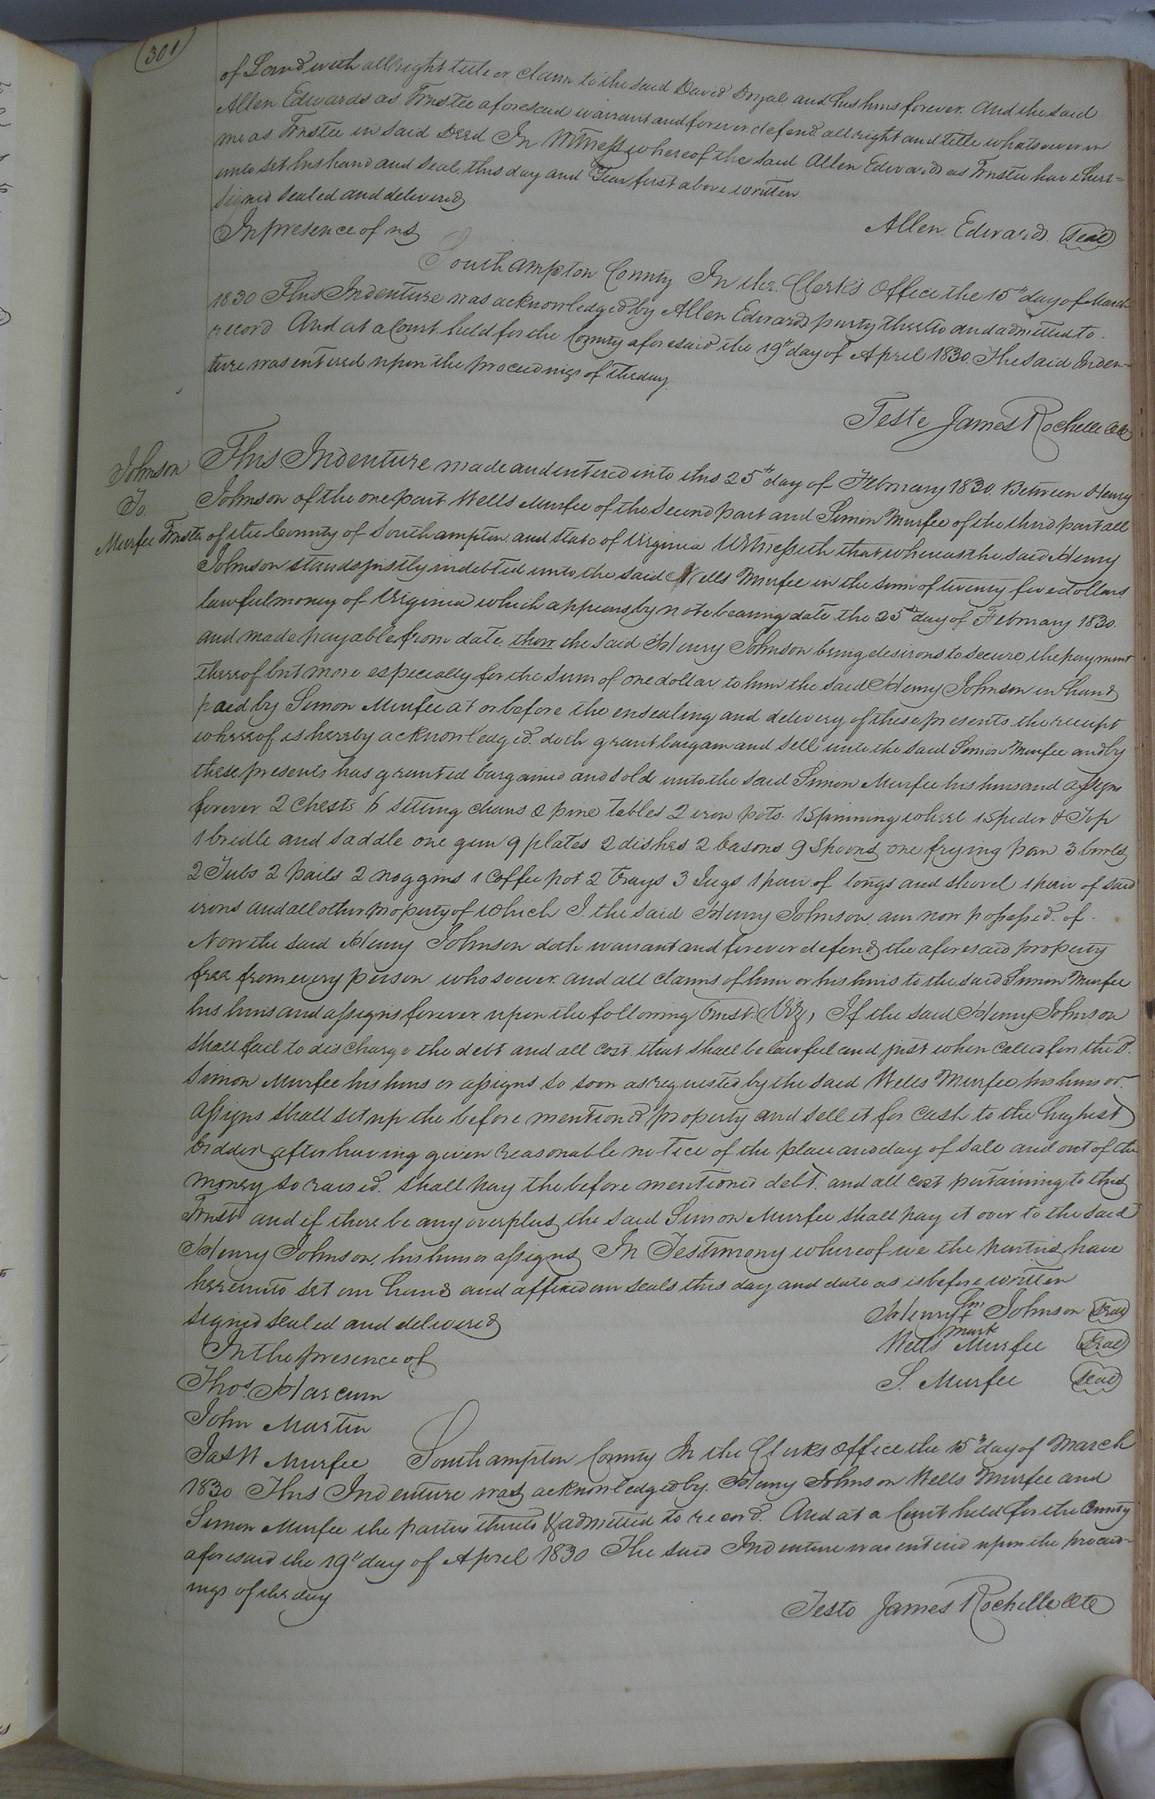 301
of Land with all right title or claim to the said David Doyal and his hiers forever. And the said
Allen Edwards as Trustee aforesaid warrant and forever defend all right and title whatsoever in
me as Trustee in said Deed In Witness whereof the said Allen Edwards as Trustee have here=
unto set his hand and seal, this day and Year first above written
Signed Sealed and delivered
In presence of us
Allen Edwards Seal
Southampton County In the Clerk's Office the 15th day of March
1830 This Indenture was acknowledged by Allen Edwards party thereto and admitted to
record And at a Court held for the County aforesaid the 19th day of April 1830 The said Inden-
ture was entered upon the proceedings of the day
Teste James Rochelle Clk
Johnson
To
Murfee Trustee
This Indenture made and entered into this 25th day of February 1830. Between Henry
Johnson of the one part Wells Murfee of the second part and Simon Murfee of the third part all
of the County of Southampton and State of Virginia Witnesseth that whereas the said Henry
Johnson stands justly indebted unto the said Wells Murfee in the sum of twenty five dollars
lawful money of Virginia which appears by note bearing date the 25th day of February 1830.
and made payable from date, then the said Henry Johnson being desirous to secure the payment
thereof but more especially for the Sum of one dollar to him the said Henry Johnson in hand
paid by Simon Murfee at or before the ensealing and delivery of these presents the receipt
whereof is hereby acknowledged. doth grant bargain and sell unto the said Simon Murfee and by
these presents has granted bargained and sold unto the said Simon Murfee his hiers and assigns
forever 2 Chests 6 sitting chairs 2 pine tables 2 iron pots. 1 Spinning wheel 1 Spider & Top
1 bridle and saddle one gun 9 plates 2 dishes 2 basons 9 Spoons one frying pan 3 bowls
2 Tubs 2 pails 2 noggins 1 Coffee pot 2 trays 3 Jugs 1 pair of tongs and shovel 1 pair of said
irons and all other property of which I the said Henry Johnson am now possessed of.
Now the said Henry Johnson doth warrant and forever defend the aforesaid property
free from every person whosoever. and all claims of him or his hiers to the said Simon Murfee
his hiers and assigns forever upon the following trust (Viz), If the said Henry Johnson
shall fail to discharge the debt and all cost that shall be lawful and just when called for the sd.
Simon Murfee his hiers or assigns so soon as requested by the said Wells Murfee his hiers or
assigns shall set up the before mentioned property and sell it for cash to the highest
bidder, after having given reasonable notice of the place and day of sale and out of the
money so raised. shall pay the before mentioned debt. and all cost pertaining to this
Trust and if there be any overplus the said Simon Murfee shall pay it over to the said
Henry Johnson, his hiers or assigns In Testimony whereof we the parties have
hereunto set our hands and affixed our seals this day and date as is before written
Signed sealed and delivered
In the presence of
Henry his + mark Johnson Seal
Wells Murfee Seal
S. Murfee Seal
Thos. Harcum
John Martin
Jas W Murfee
Southampton County In the Clerks Office the 15th day of March
1830 This Indenture was acknowledged by Henry Johnson Wells Murfee and
Simon Murfee the parties thereto & admitted to record. And at a Court held for the County
aforesaid the 19th day of April 1830 The said Indenture was entered upon the proceed-
ings of the day
Teste James Rochelle Clk